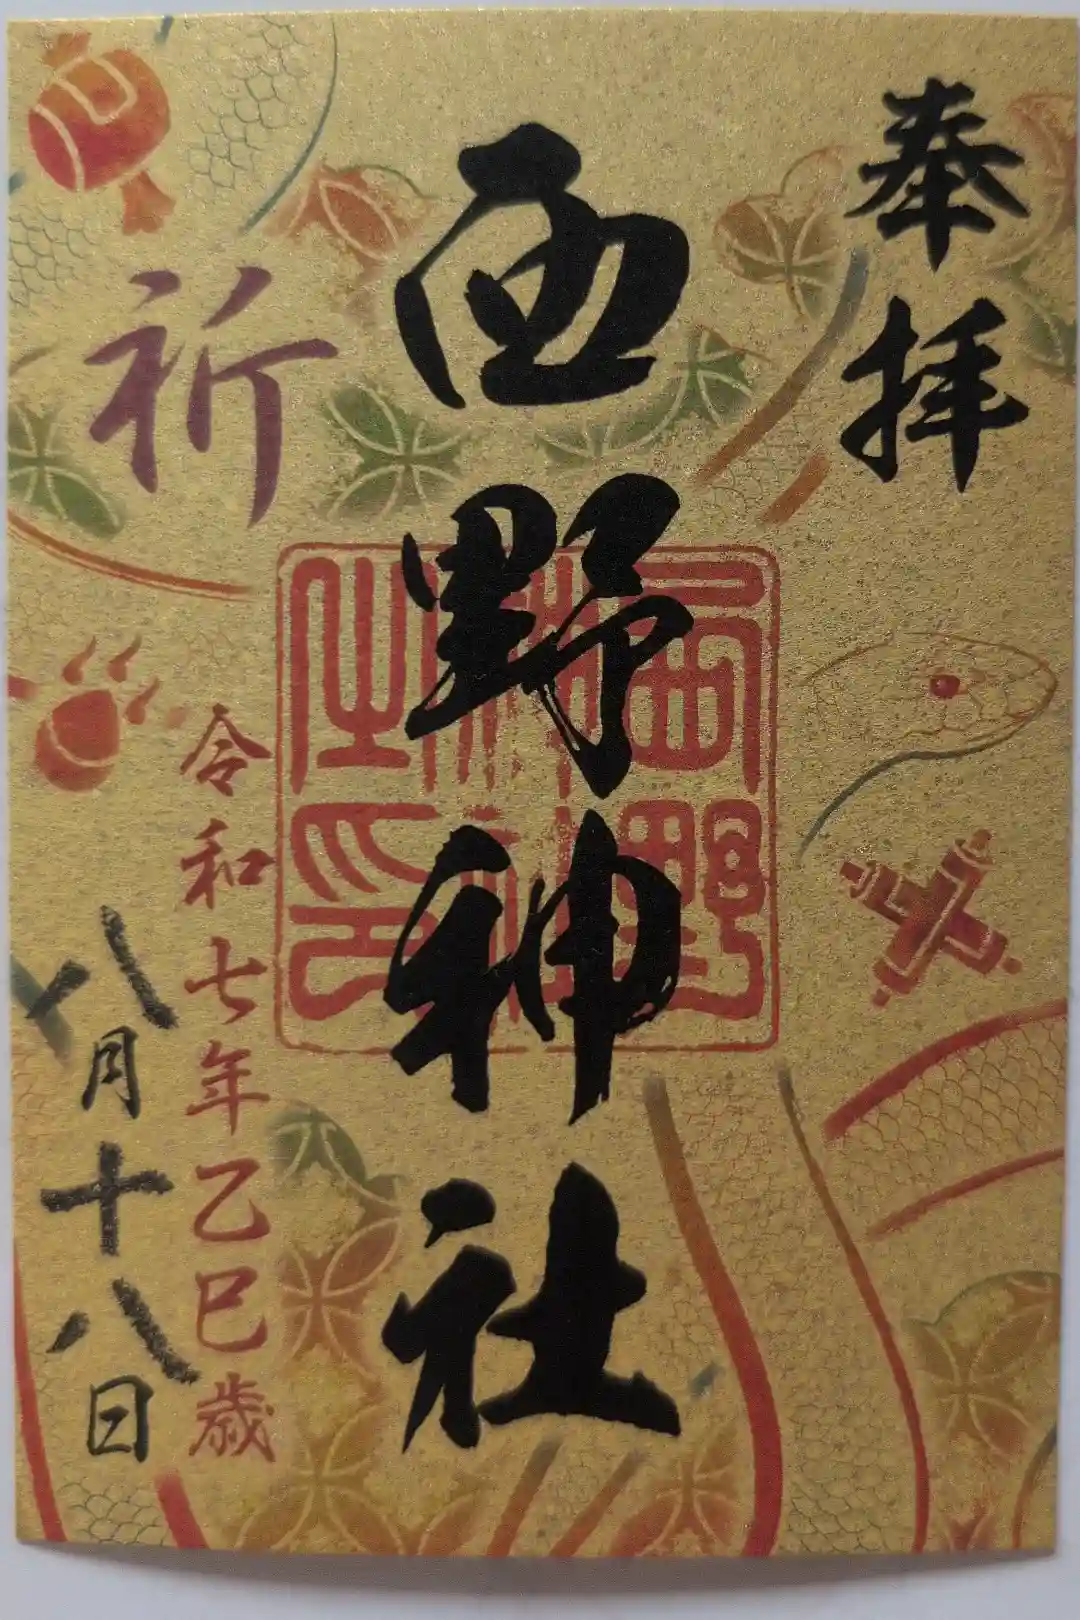 奉拝
西野神社
西野神社之印
祈
令和七年乙巳歳
八月十八日